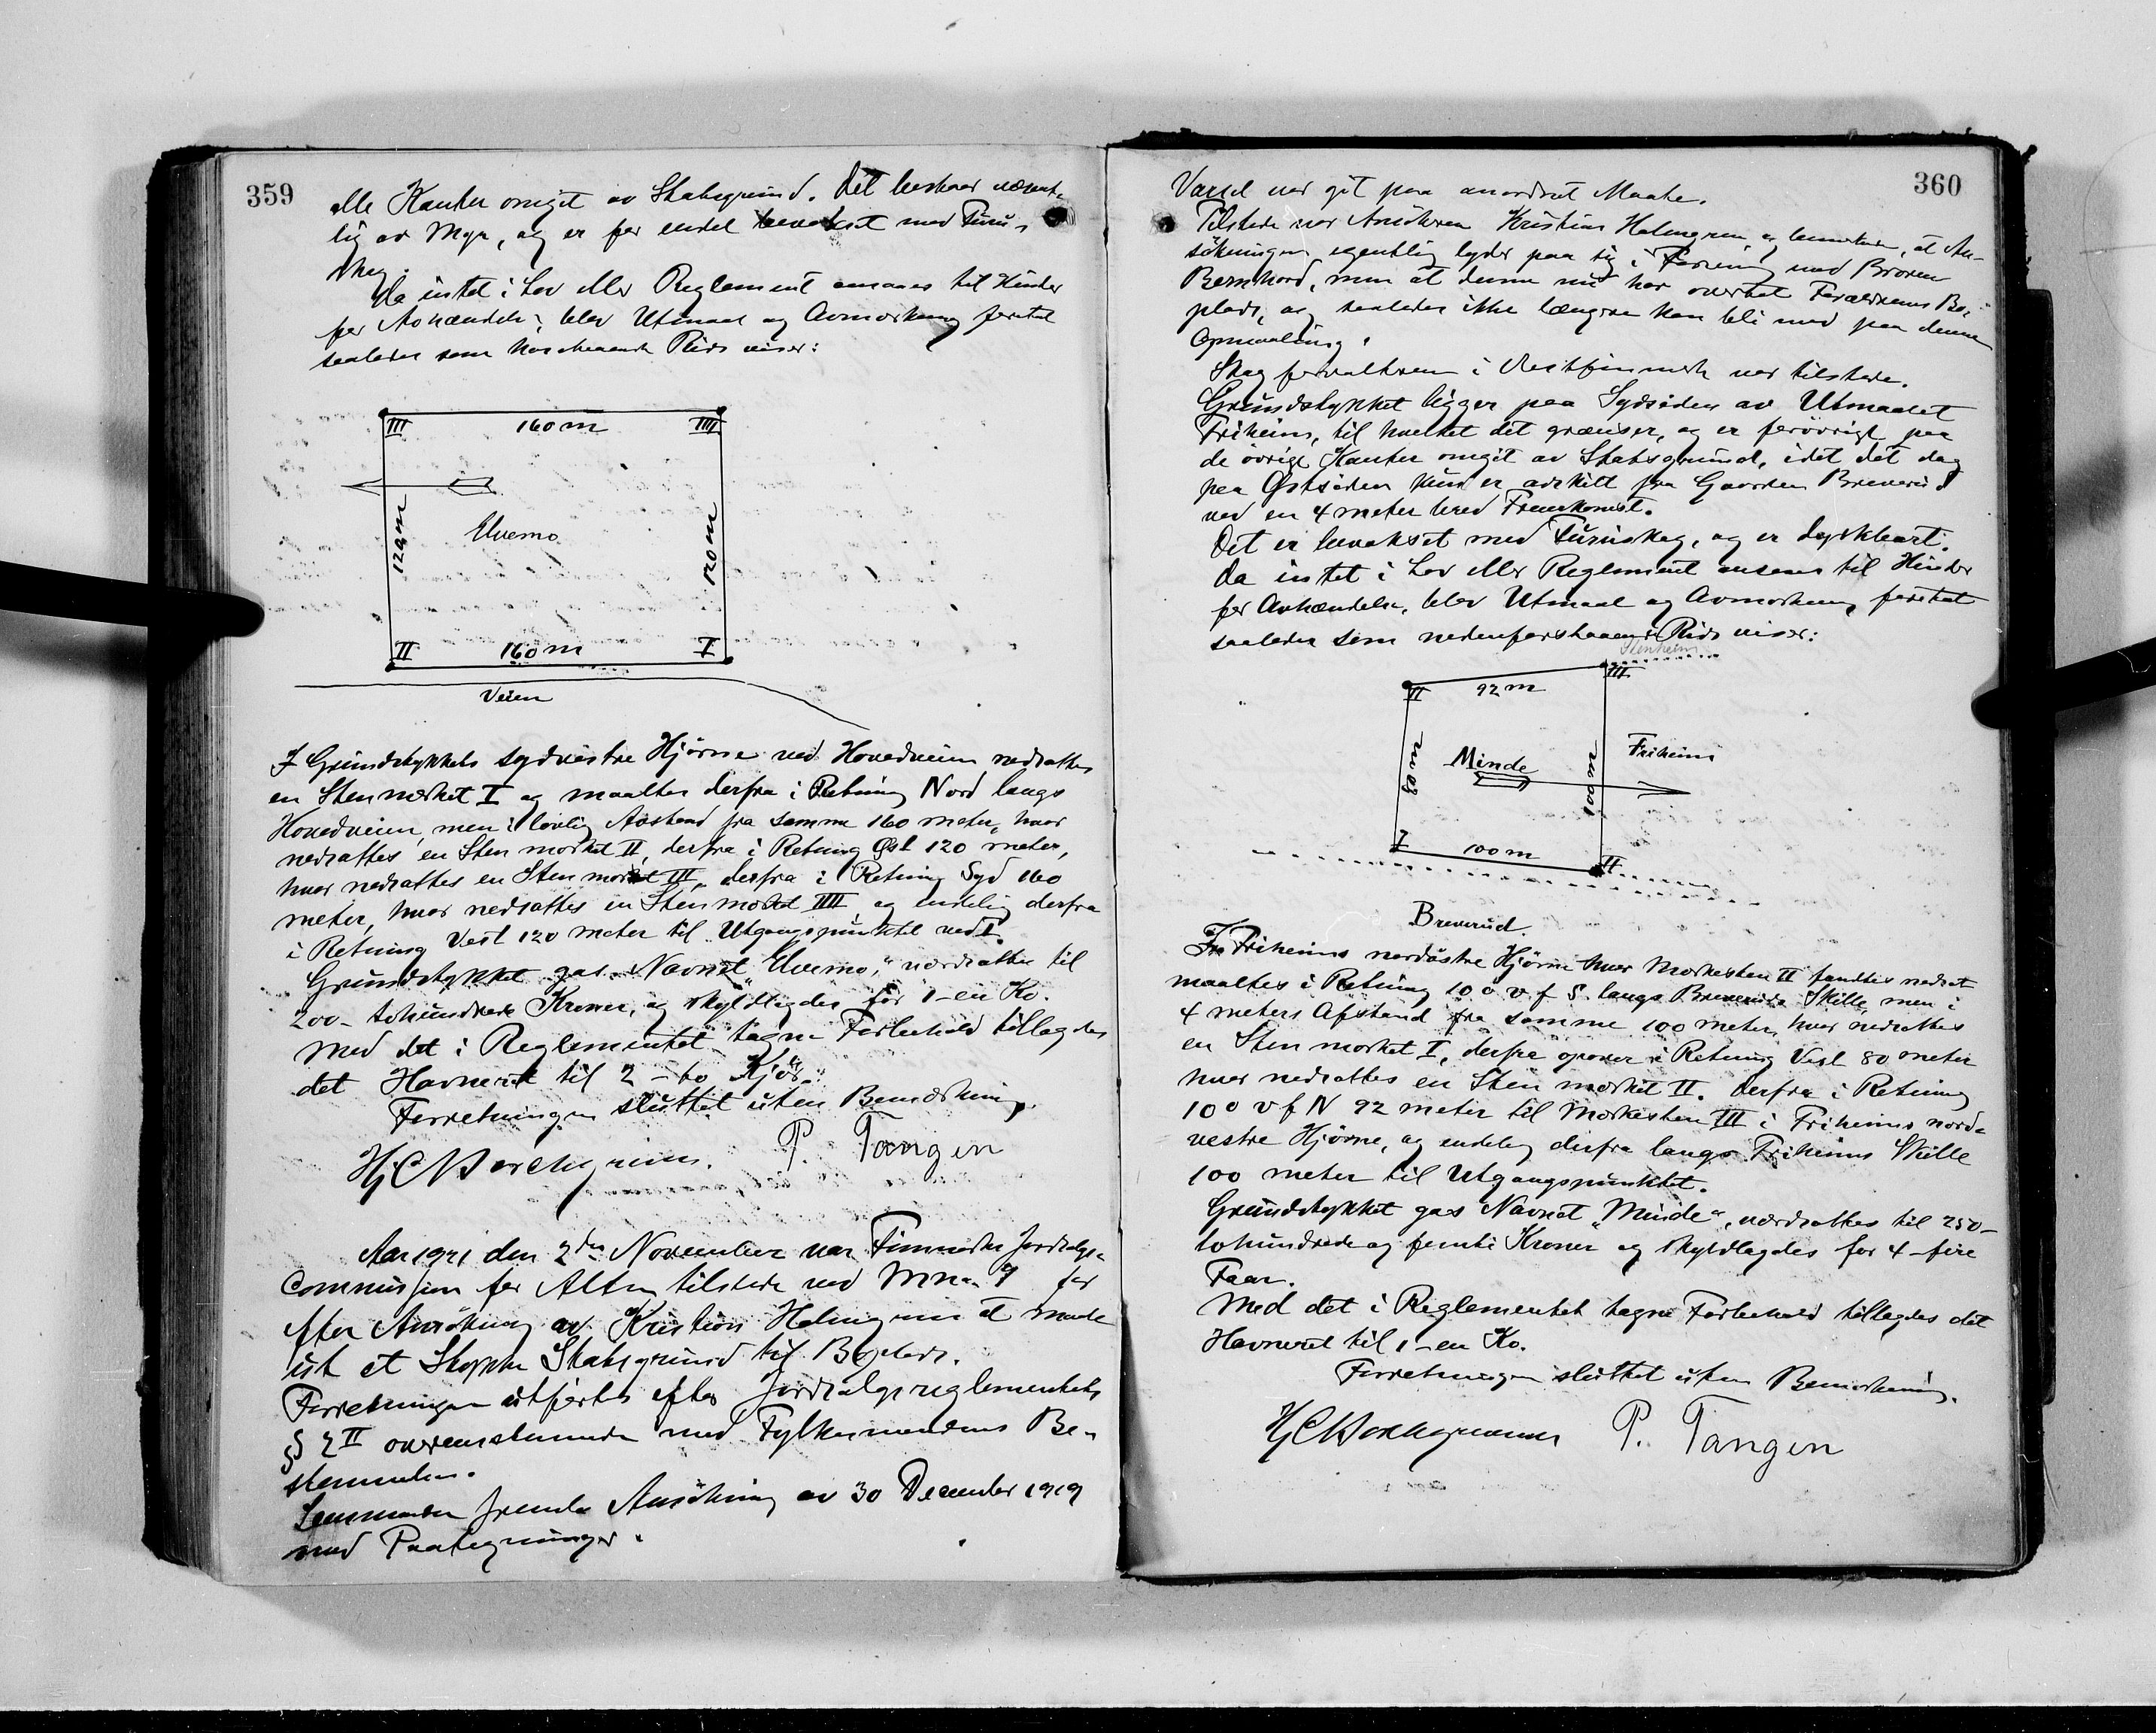 359
alle Kanter omgit av Statsgrund. Det bestaar væsent-
lig av Myr, og er for endel bevokset med Furu-
skog.
Da intet i Lov eller Reglement ansaaes til Hinder
for Avhændelse, blev Utmaal og Avmerkning foretat
saaledes som hosstaaende Rids viser:
III 160 m IIII
120 m Elvemo 120 m
II 160 m I
Veien
I Grundstykkets sydvestre Hjørne ved Hovedveien nedsattes
en Sten merket I og maaltes derfra i Retning Nord langs
Hovedveien, men i lovlig Avstand fra samme 160 meter, hvor
nedsattes en Sten merket II, derfra i Retning Øst 120 meter,
hvor nedsattes en Sten merket III, derfra i Retning Syd 160
meter, hvor nedsattes en Sten merket IIII, og endelig derfra
i Retning Vest 120 meter til Utgangspunktet ved I.
Grundstykket gas Navnet "Elvemo," værdsattes til
200 - tohundrede Kroner, og skyldlagdes for 1 - en Ko.
Med det i Reglementet tagne Forbehold tillagdes
det Havneret til 2 - to Kjør.
Forretningen sluttet uten Bemærkning.
P. Tangen
Aar 1921 den 2den November var Finmarkens Jordsalgs-
Commission for Alten tilstede ved for
efter Ansøkning av Kristian Holmgren at maale
ut et Stykke Statsgrund til Boplads.
Forretningen utførtes efter Jordsalgsreglementets
§ 2 II overensstemmende med Fylkesmandens Be-
stemmelse.
Lensmanden fremla Ansøkning av 30 December 1919
med Paategninger.
360
Varsel var git paa anordnet Maate.
Tilstede var Ansøkeren Kristian Holmgren, og bemerket, at An-
søkningen egentlig lyder paa sig i Forening med Broren
Bernhard, men at denne nu har overtat Forældrenes Bo-
plads, og saaledes ikke længere kan bli med paa denne
Opmaaling.
Skogforvalteren i Vestfinmark var tilstede.
Grundstykket ligger paa Sydsiden av Utmaalet
Friheim, til hvilket det grænser, og er forøvrigt paa
de øvrige Kanter omgit av Statsgrund, idet det dog
paa Østsiden kun er adskilt fra Gaarden Breverud
ved en 4 meter bred Fremkomst.
Det er bevokset med Furuskog, og er dyrkbart.
Da intet i Lov eller Reglement ansaaes til Hinder
for Avhændelse, blev Utmaal og Avmerkning foretat
saaledes som nedenforstaaende Rids viser:
Stenheim
II 92 m III
80 m Minde 100 m Friheim
I 100 m II
Breverud.
I Friheims nordøstre Hjørne hvor Merkesten II fandtes nedsat
maaltes i Retning 10° v f S. langs Breveruds Skille, men i
4 meters Afstand fra samme 100 meter, hvor nedsattes
en Sten merket I, derfra opover i Retning Vest 80 meter
hvor nedsattes en Sten merket II. Derfra i Retning
10° v f N 92 meter til Merkesten III i Friheims nord-
vestre Hjørne, og endelig derfra langs Friheims Skille
100 meter til Utgangspunktet.
Grundstykket gas Navnet "Minde", værdsattes til 250 -
tohundrede og femti Kroner og skyldlagdes for 4 - fire
Faar.
Med det i Reglementet tagne Forbehold tillagdes det
Havneret til 1 - en Ko.
Forretningen sluttet uten Bemerkning.
P. Tangen